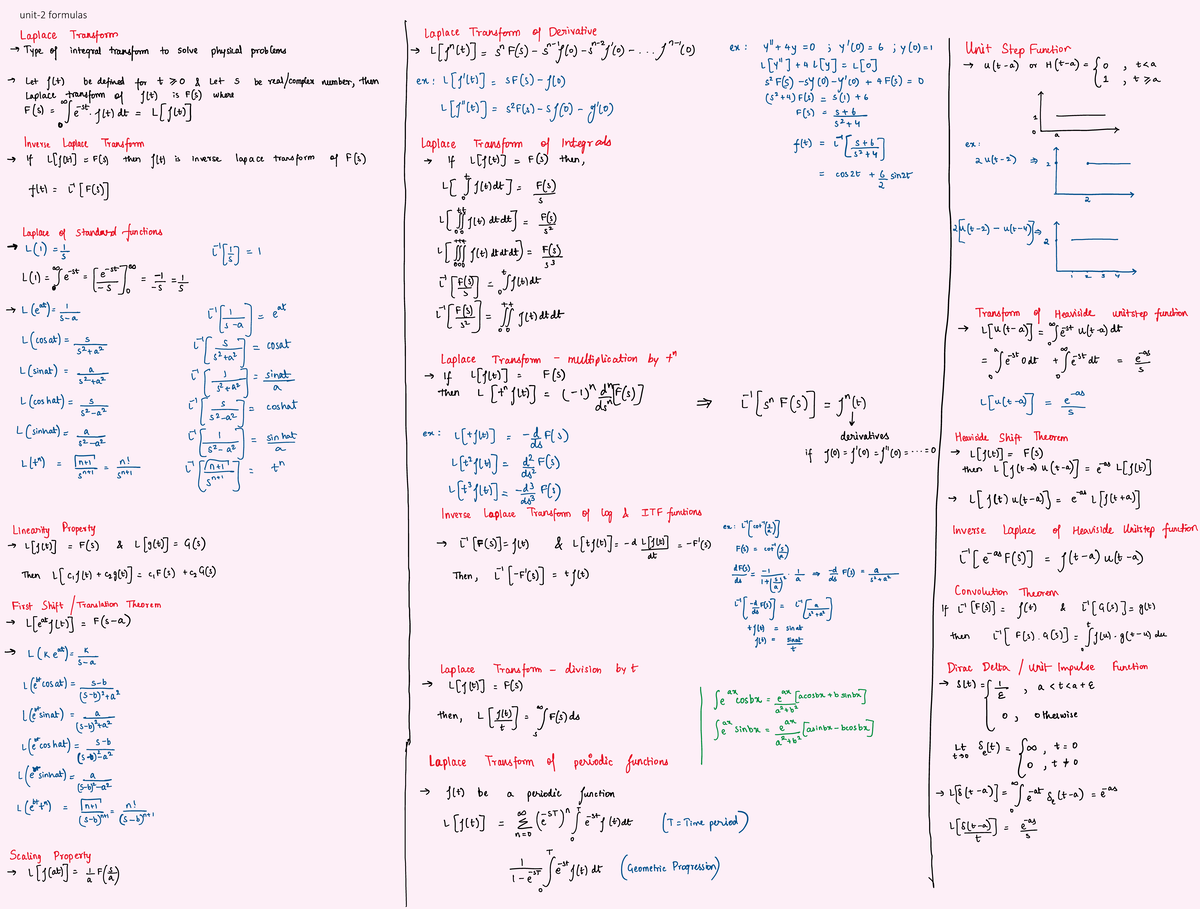 unit-2 formulas
Laplace Transform
→ Type of integral transform to solve physical problems
→ Let f(t) be defined for t ≥ 0 & Let s be real/complex number, then
Laplace transform of f(t) is F(s) where
F(s) = ∫₀^∞ e^-st . f(t) dt = L[f(t)]
Inverse Laplace Transform
→ If L[f(t)] = F(s) then f(t) is inverse lapace transform of F(s)
f(t) = L⁻¹[F(s)]
Laplace of standard functions
→ L(1) = 1/s L⁻¹[1/s] = 1
L(1) = ∫₀^∞ e^-st = [e^-st/-s]₀^∞ = -1/-s = 1/s
→ L(e^at) = 1/s-a L⁻¹[1/s-a] = e^at
L(cosat) = s/s²+a² L⁻¹[s/s²+a²] = cosat
L(sinat) = a/s²+a² L⁻¹[1/s²+a²] = sinat/a
L(coshat) = s/s²-a² L⁻¹[s/s²-a²] = coshat
L(sinhat) = a/s²-a² L⁻¹[1/s²-a²] = sinhat/a
L(tⁿ) = Γn+1/s^n+1 = n!/s^n+1 L⁻¹[Γn+1/s^n+1] = tⁿ
Linearity Property
→ L[f(t)] = F(s) & L[g(t)] = G(s)
Then L[c₁f(t) + c₂g(t)] = c₁F(s) + c₂G(s)
First Shift / Translation Theorem
→ L[e^at f(t)] = F(s-a)
→ L(K e^at) = K/s-a
L(e^bt cosat) = s-b/(s-b)²+a²
L(e^bt sinat) = a/(s-b)²+a²
L(e^bt coshat) = s-b/(s-b)²-a²
L(e^bt sinhat) = a/(s-b)²-a²
L(e^bt tⁿ) = Γn+1/(s-b)^n+1 = n!/(s-b)^n+1
Scaling Property
→ L[f(at)] = 1/a F(s/a)
Laplace Transform of Derivative
→ L[fⁿ(t)] = sⁿ F(s) - s^n-1 f(0) - s^n-2 f'(0) - ... f^n-1(0)
ex: L[f'(t)] = sF(s) - f(0)
L[f''(t)] = s²F(s) - sf(0) - f'(0)
ex: y'' + 4y = 0 ; y'(0) = 6 ; y(0) = 1
L[y''] + 4L[y] = L[0]
s²F(s) - sy(0) - y'(0) + 4F(s) = 0
(s²+4)F(s) = s(1) + 6
F(s) = s+6/s²+4
f(t) = L⁻¹[s+6/s²+4]
= cos2t + 6/2 sin2t
Laplace Transform of Integrals
→ If L[f(t)] = F(s) then,
L[∫₀^t f(t)dt] = F(s)/s
L[∫₀^t∫₀^t f(t) dtdt] = F(s)/s²
L[∫₀^t∫₀^t∫₀^t f(t) dtdtdt] = F(s)/s³
L⁻¹[F(s)/s] = ∫₀^t f(t)dt
L⁻¹[F(s)/s²] = ∫₀^t∫₀^t f(t) dtdt
Laplace Transform - multiplication by tⁿ
→ If L[f(t)] = F(s)
then L[tⁿ f(t)] = (-1)ⁿ dⁿ/dsⁿ[F(s)] ⇒ L⁻¹[sⁿ F(s)] = fⁿ(t)
↓
derivatives
if f(0) = f'(0) = f''(0) = ..... = 0
ex: L[tf(t)] = -d/ds F(s)
L[t²f(t)] = d²/ds² F(s)
L[t³f(t)] = -d³/ds³ F(s)
Inverse Laplace Transform of log & ITF funtions
→ L⁻¹[F(s)] = f(t) & L[tf(t)] = -d L[f(t)]/dt = -F'(s)
Then, L⁻¹[-F'(s)] = tf(t)
ex: L⁻¹[cot⁻¹(s/a)]
F(s) = cot⁻¹(s/a)
dF(s)/ds = -1/1+(s/a)² . 1/a ⇒ -d/ds F(s) = a/s²+a²
L⁻¹[-d/ds F(s)] = L⁻¹[a/s²+a²]
tf(t) = sinat
f(t) = sinat/t
Laplace Transform - division by t
→ L[f(t)] = F(s)
then, L[f(t)/t] = ∫ₛ^∞ F(s)ds
∫e^ax cosbx = e^ax/a²+b² [acosbx + b sinbx]
∫e^ax sinbx = e^ax/a²+b² [asinbx - bcosbx]
Laplace Transform of periodic functions
→ f(t) be a periodic function
L[f(t)] = Σ_n=0^∞ (e^-sT)ⁿ ∫₀^T e^-st f(t)dt (T = Time period)
1/1-e^-sT ∫₀^T e^-st f(t) dt (Geometric Progression)
Unit Step Function
→ u(t-a) or H(t-a) = {0 , t<a
1 , t≥a
1
0 a
ex:
2u(t-2) ⇒ 2
2
2[u(t-2) - u(t-4)] ⇒ 2
1 2 3 4
Transform of Heaviside unitstep function
→ L[u(t-a)] = ∫₀^∞ e^-st u(t-a) dt
= ∫₀^a e^-st 0dt + ∫₀^∞ e^-st dt = e^-as/s
L[u(t-a)] = e^-as/s
Heaviside Shift Theorem
→ L[f(t)] = F(s)
then L[f(t-a) u(t-a)] = e^-as L[f(t)]
→ L[f(t) u(t-a)] = e^-as L[f(t+a)]
Inverse Laplace of Heaviside Unitstep function
L⁻¹[e^-as F(s)] = f(t-a) u(t-a)
Convolution Theorem
If L⁻¹[F(s)] = f(t) & L⁻¹[G(s)] = g(t)
then L⁻¹[F(s) . G(s)] = ∫₀^t f(u) . g(t-u) du
Dirac Delta / Unit Impulse Function
→ δ(t) = {1/ε , a<t<a+ε
0 , otherwise
Lt t→0 δε(t) = {∞ , t=0
0 , t≠0
→ L[δ(t-a)] = ∫₀^∞ e^-at δε(t-a) = e^-as
L[δ(t-a)/t] = e^-as/s